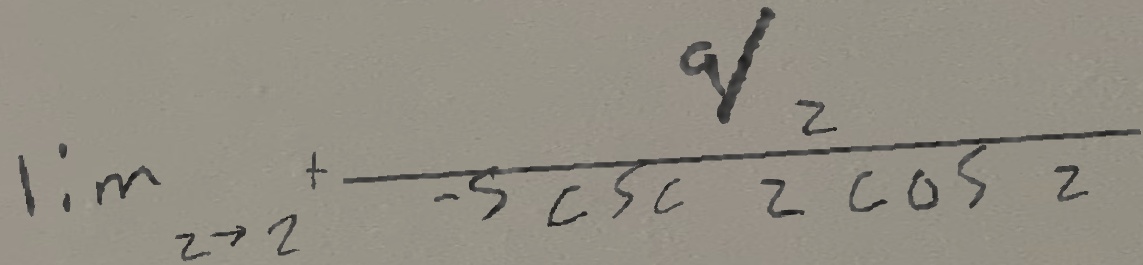 lim z→2⁺ (9/2)/(-5 csc z cos z)